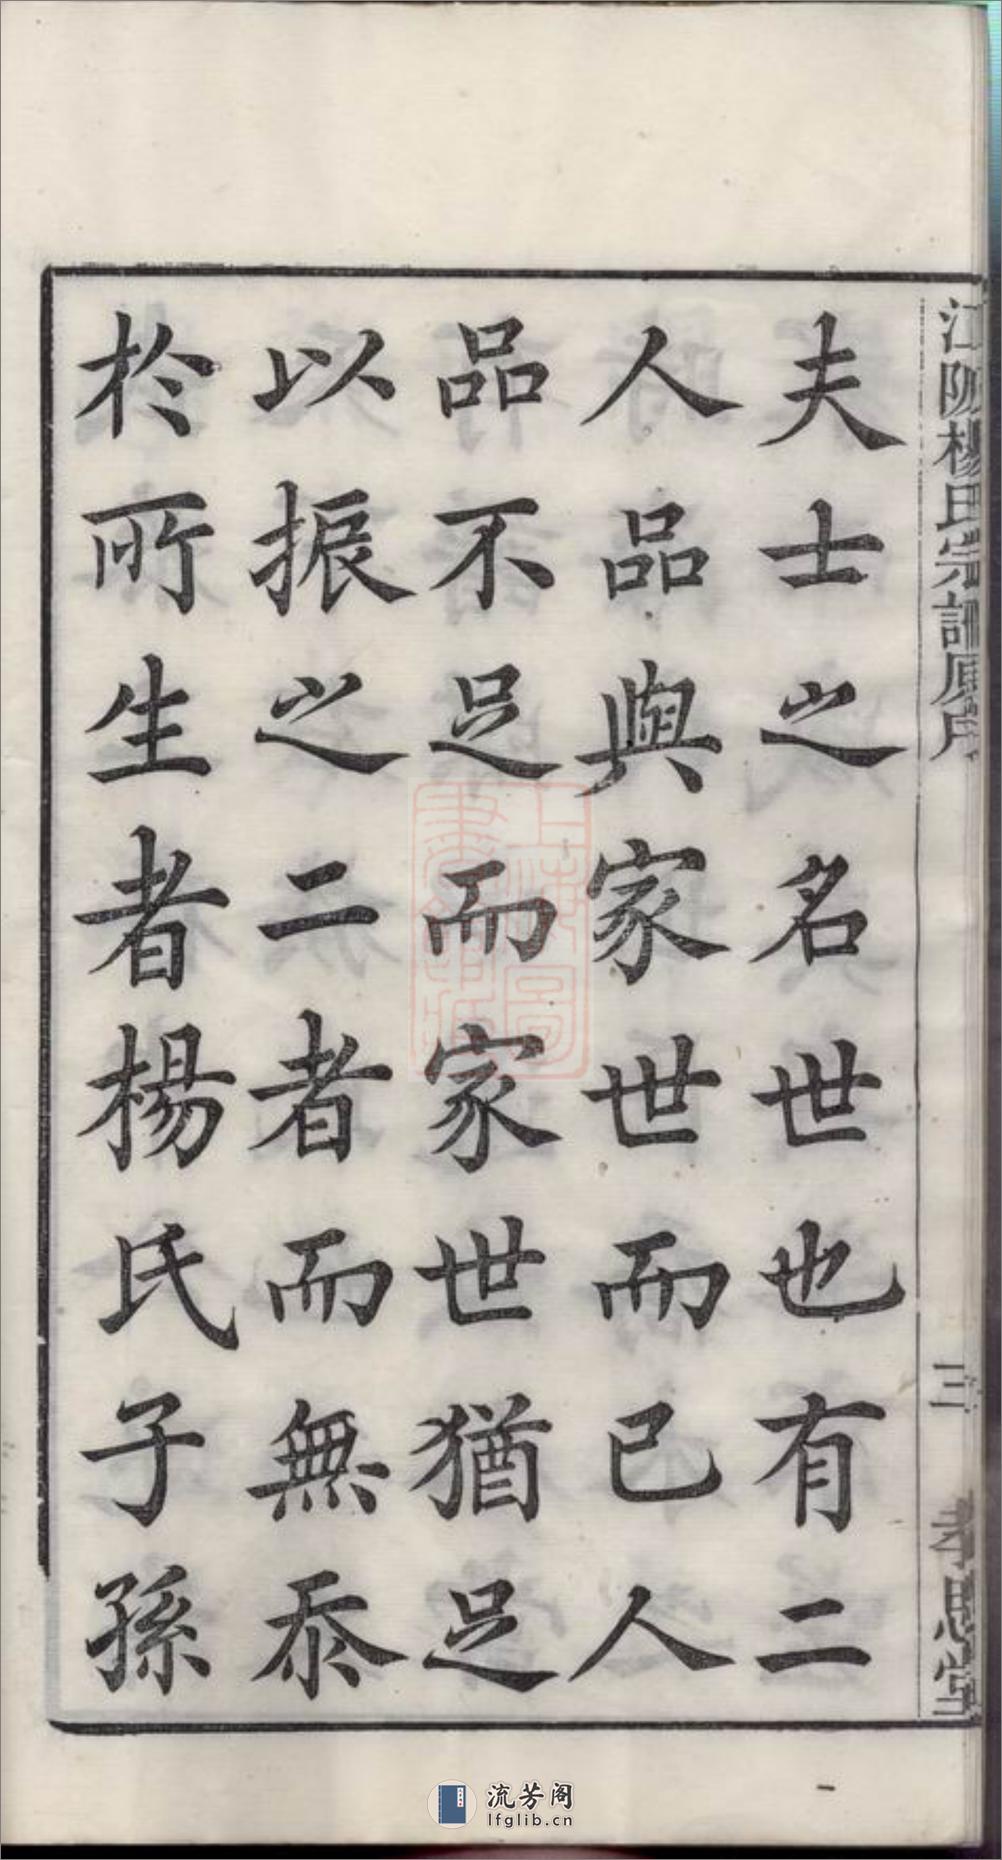 江陰楊氏宗譜原序
三
孝思堂
夫士之名世也有二
人品與家世而已人
品不足而家世猶足
以振之二者而無忝
於所生者楊氏子孫
上海圖書館藏
流芳阁
lfglib.cn